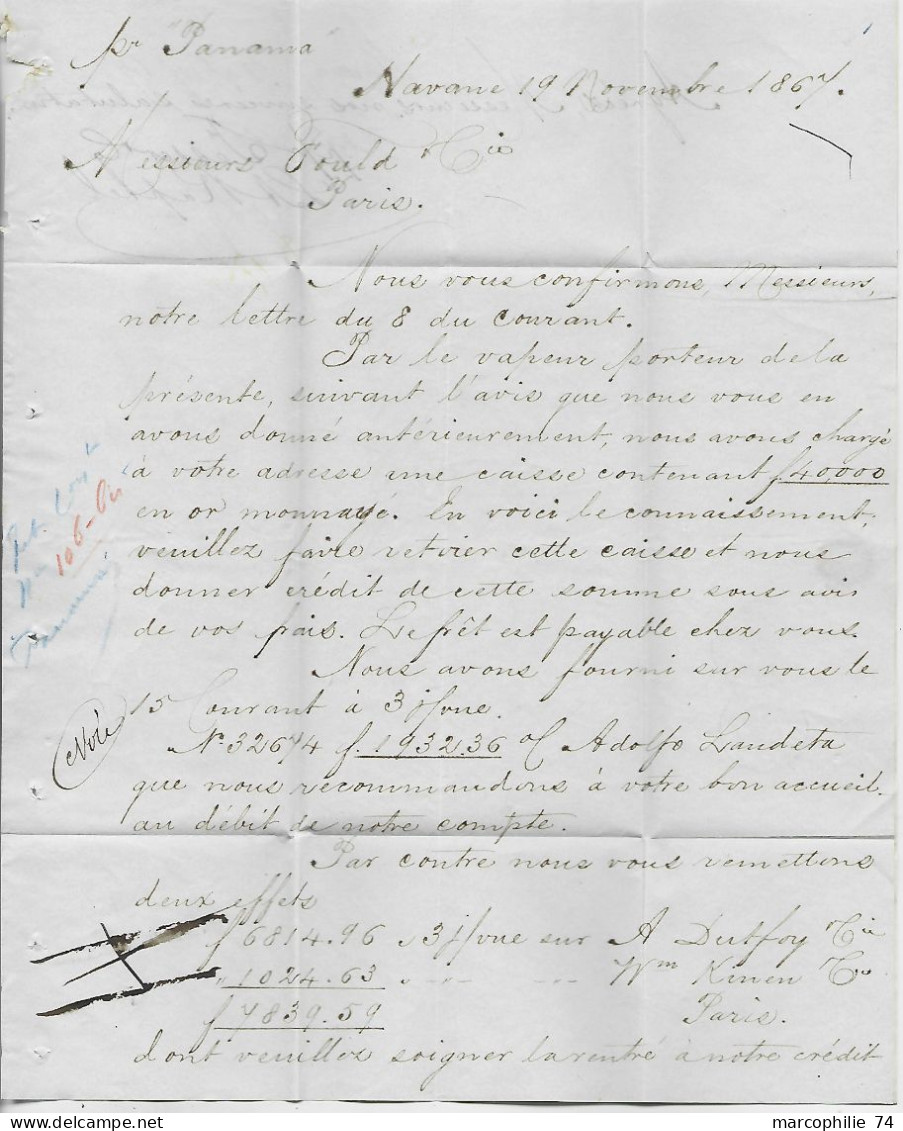 pr Panama
Havane 19 Novembre 1867.
Messieurs Fould & Cie
Paris.
Nous vous confirmons, Messieurs,
notre lettre du 8 du Courant.
Par le vapeur porteur de la
présente, suivant l'avis que nous vous en
avons donné antérieurement, nous avons chargé
à votre adresse une caisse contenant f 40000
en or monnayé. En voici le connaissement,
veuillez faire retirer cette caisse et nous
donner crédit de cette somme sous avis
de vos frais. Le frêt est payable chez vous.
Nous avons fourni sur vous le
15 Courant à 3 j/vue
Noté
No 32674 f. 1932.36 o/ Adolfo Landeta
que nous recommandons à votre bon accueil.
au débit de notre compte.
Par contre nous vous remettons
deux effets
f 6814.96 à 3 j/vue sur A Dutfoy & Cie
" 1024.63 " - " - - " - Wm Kinen & Co
f 7839.59 Paris.
dont veuillez soigner la rentré à notre crédit
marcophilie 74